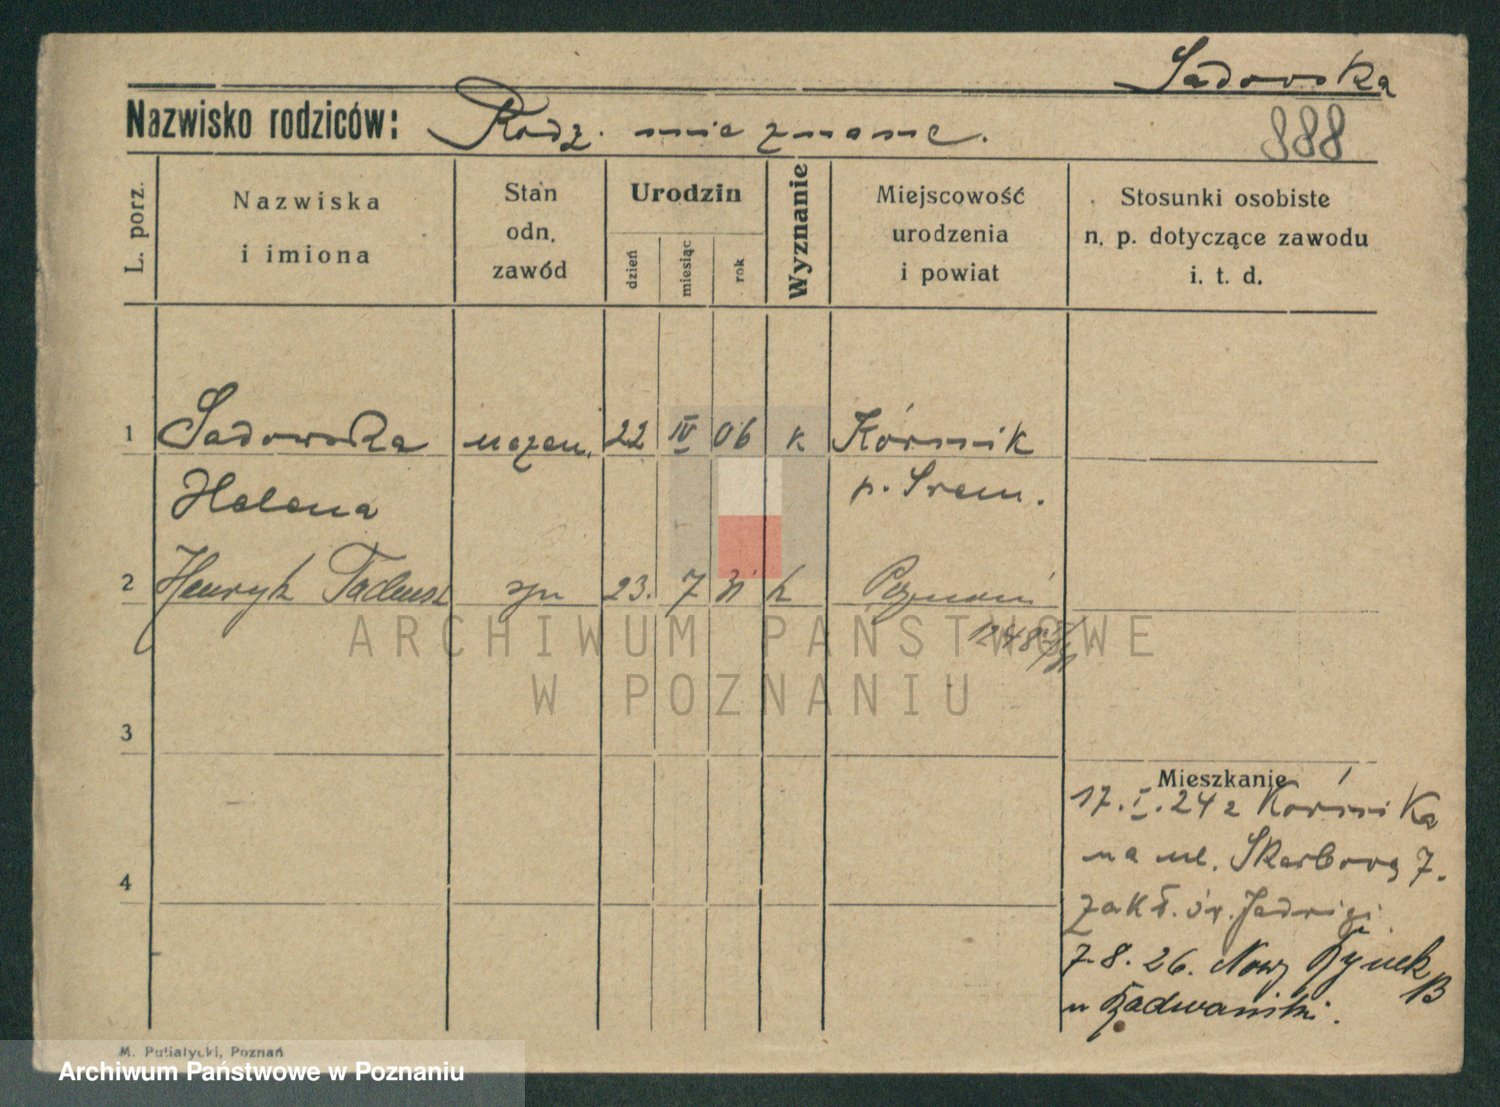 Sadowska
Nazwisko rodziców: Rodz. nie znane.
888
L. porz.
Nazwiska
i imiona
Stan
odn.
zawód
Urodzin
dzień
miesiąc
rok
Wyznanie
Miejscowość
urodzenia
i powiat
Stosunki osobiste
n. p. dotyczące zawodu
i. t. d.
1 Sadowska uczen. 22 IV 06 k Kórnik
Helena p. Srem.
2 Henryk Tadeusz syn 23. 7 31 k Poznań
ARCHIWUM PAŃSTWOWE
W POZNANIU
3
Mieszkanie
17. I. 24 z Kórnika
na ul. Skarbową 7.
4
zakł. św. Jadwigi
7. 8. 26. Nowy Rynek
13
u Radwański.
M. Putiatycki, Poznań
Archiwum Państwowe w Poznaniu